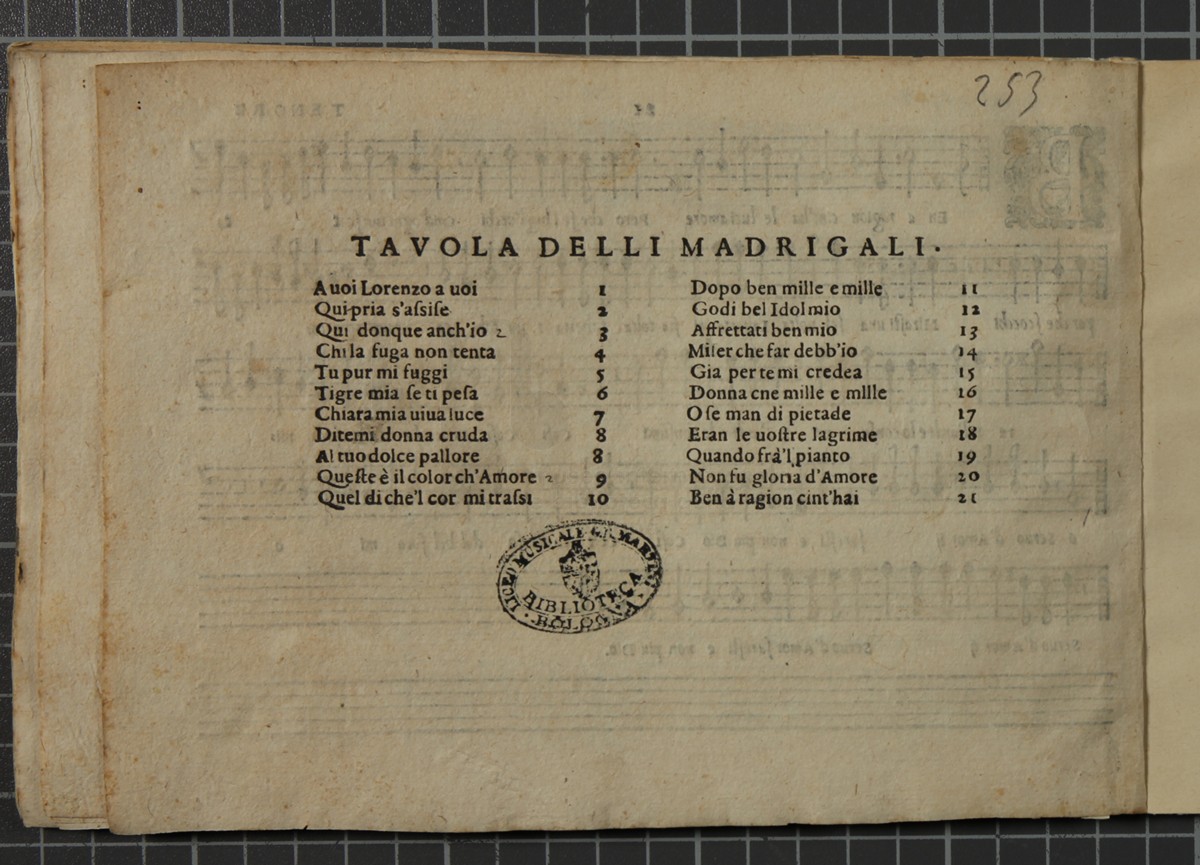 253
TAVOLA DELLI MADRIGALI.
A uoi Lorenzo a uoi 1
Qui pria s'aſsiſe 2
Qui donque anch'io 2 3
Chi la fuga non tenta 4
Tu pur mi fuggi 5
Tigre mia ſe ti peſa 6
Chiara mia uiua luce 7
Ditemi donna cruda 8
Al tuo dolce pallore 8
Queſte è il color ch'Amore 2 9
Quel di che'l cor mi traſsi 10
Dopo ben mille e mille 11
Godi bel Idol mio 12
Affrettati ben mio 13
Miſer che far debb'io 14
Gia per te mi credea 15
Donna cne mille e mllle 16
O ſe man di pietade 17
Eran le uoſtre lagrime 18
Quando frà'l pianto 19
Non fu gloria d'Amore 20
Ben à ragion cint'hai 21
LICEO MUSICALE G.B. MARTINI
BIBLIOTECA
BOLOGNA